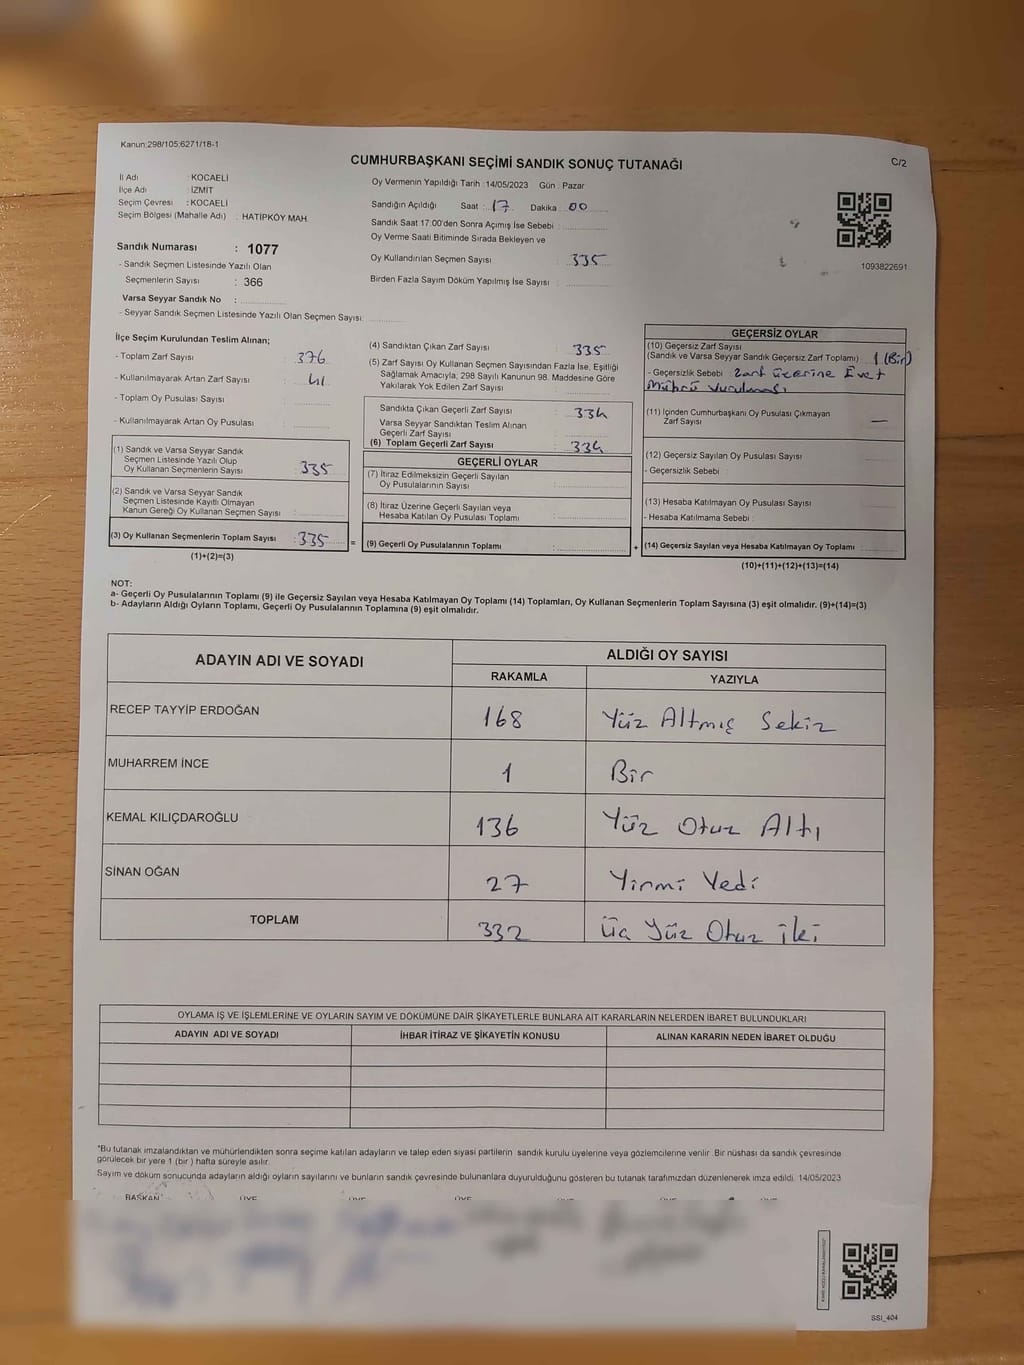 Kanun:298/105;6271/18-1
CUMHURBAŞKANI SEÇİMİ SANDIK SONUÇ TUTANAĞI
C/2
İl Adı : KOCAELİ
İlçe Adı : İZMİT
Seçim Çevresi : KOCAELİ
Seçim Bölgesi (Mahalle Adı) : HATİPKÖY MAH.
Sandık Numarası : 1077
- Sandık Seçmen Listesinde Yazılı Olan
Seçmenlerin Sayısı : 366
Varsa Seyyar Sandık No :
- Seyyar Sandık Seçmen Listesinde Yazılı Olan Seçmen Sayısı:
Oy Vermenin Yapıldığı Tarih :14/05/2023 Gün : Pazar
Sandığın Açıldığı Saat : 17 Dakika 00
Sandık Saat 17:00'den Sonra Açımış İse Sebebi :
Oy Verme Saati Bitiminde Sırada Bekleyen ve
Oy Kullandırılan Seçmen Sayısı : 335
Birden Fazla Sayım Döküm Yapılmış İse Sayısı :
1093822691
İlçe Seçim Kurulundan Teslim Alınan;
- Toplam Zarf Sayısı : 376
- Kullanılmayarak Artan Zarf Sayısı : 41
- Toplam Oy Pusulası Sayısı :
- Kullanılmayarak Artan Oy Pusulası :
(1) Sandık ve Varsa Seyyar Sandık
Seçmen Listesinde Yazılı Olup
Oy Kullanan Seçmenlerin Sayısı : 335
(2) Sandık ve Varsa Seyyar Sandık
Seçmen Listesinde Kayıtlı Olmayan
Kanun Gereği Oy Kullanan Seçmen Sayısı :
(3) Oy Kullanan Seçmenlerin Toplam Sayısı : 335
(1)+(2)=(3)
(4) Sandıktan Çıkan Zarf Sayısı : 335
(5) Zarf Sayısı Oy Kullanan Seçmen Sayısından Fazla İse, Eşitliği
Sağlamak Amacıyla, 298 Sayılı Kanunun 98. Maddesine Göre
Yakılarak Yok Edilen Zarf Sayısı :
Sandıkta Çıkan Geçerli Zarf Sayısı : 334
Varsa Seyyar Sandıktan Teslim Alınan
Geçerli Zarf Sayısı :
(6) Toplam Geçerli Zarf Sayısı : 334
GEÇERLİ OYLAR
(7) İtiraz Edilmeksizin Geçerli Sayılan
Oy Pusulalarının Sayısı :
(8) İtiraz Üzerine Geçerli Sayılan veya
Hesaba Katılan Oy Pusulası Toplamı :
= (9) Geçerli Oy Pusulalarının Toplamı :
GEÇERSİZ OYLAR
(10) Geçersiz Zarf Sayısı
(Sandık ve Varsa Seyyar Sandık Geçersiz Zarf Toplamı) : 1 (Bir)
- Geçersizlik Sebebi : Zarf üzerine Evet
Mührü Vurulması
(11) İçinden Cumhurbaşkanı Oy Pusulası Çıkmayan
Zarf Sayısı : —
(12) Geçersiz Sayılan Oy Pusulası Sayısı :
- Geçersizlik Sebebi :
(13) Hesaba Katılmayan Oy Pusulası Sayısı :
- Hesaba Katılmama Sebebi :
+ (14) Geçersiz Sayılan veya Hesaba Katılmayan Oy Toplamı :
(10)+(11)+(12)+(13)=(14)
NOT:
a- Geçerli Oy Pusulalarının Toplamı (9) ile Geçersiz Sayılan veya Hesaba Katılmayan Oy Toplamı (14) Toplamları, Oy Kullanan Seçmenlerin Toplam Sayısına (3) eşit olmalıdır. (9)+(14)=(3)
b- Adayların Aldığı Oyların Toplamı, Geçerli Oy Pusulalarının Toplamına (9) eşit olmalıdır.
ADAYIN ADI VE SOYADI
ALDIĞI OY SAYISI
RAKAMLA YAZIYLA
RECEP TAYYİP ERDOĞAN 168 Yüz Altmış Sekiz
MUHARREM İNCE 1 Bir
KEMAL KILIÇDAROĞLU 136 Yüz Otuz Altı
SİNAN OĞAN 27 Yirmi Yedi
TOPLAM 332 Üç Yüz Otuz İki
OYLAMA İŞ VE İŞLEMLERİNE VE OYLARIN SAYIM VE DÖKÜMÜNE DAİR ŞİKAYETLERLE BUNLARA AİT KARARLARIN NELERDEN İBARET BULUNDUKLARI
ADAYIN ADI VE SOYADI İHBAR İTİRAZ VE ŞİKAYETİN KONUSU ALINAN KARARIN NEDEN İBARET OLDUĞU
"Bu tutanak imzalandıktan ve mühürlendikten sonra seçime katılan adayların ve talep eden siyasi partilerin sandık kurulu üyelerine veya gözlemcilerine verilir. Bir nüshası da sandık çevresinde
görülecek bir yere 1 (bir) hafta süreyle asılır.
Sayım ve döküm sonucunda adayların aldığı oyların sayılarını ve bunların sandık çevresinde bulunanlara duyurulduğunu gösteren bu tutanak tarafımızdan düzenlenerek imza edildi. 14/05/2023
BAŞKAN ÜYE ÜYE ÜYE ÜYE ÜYE
SSI_404